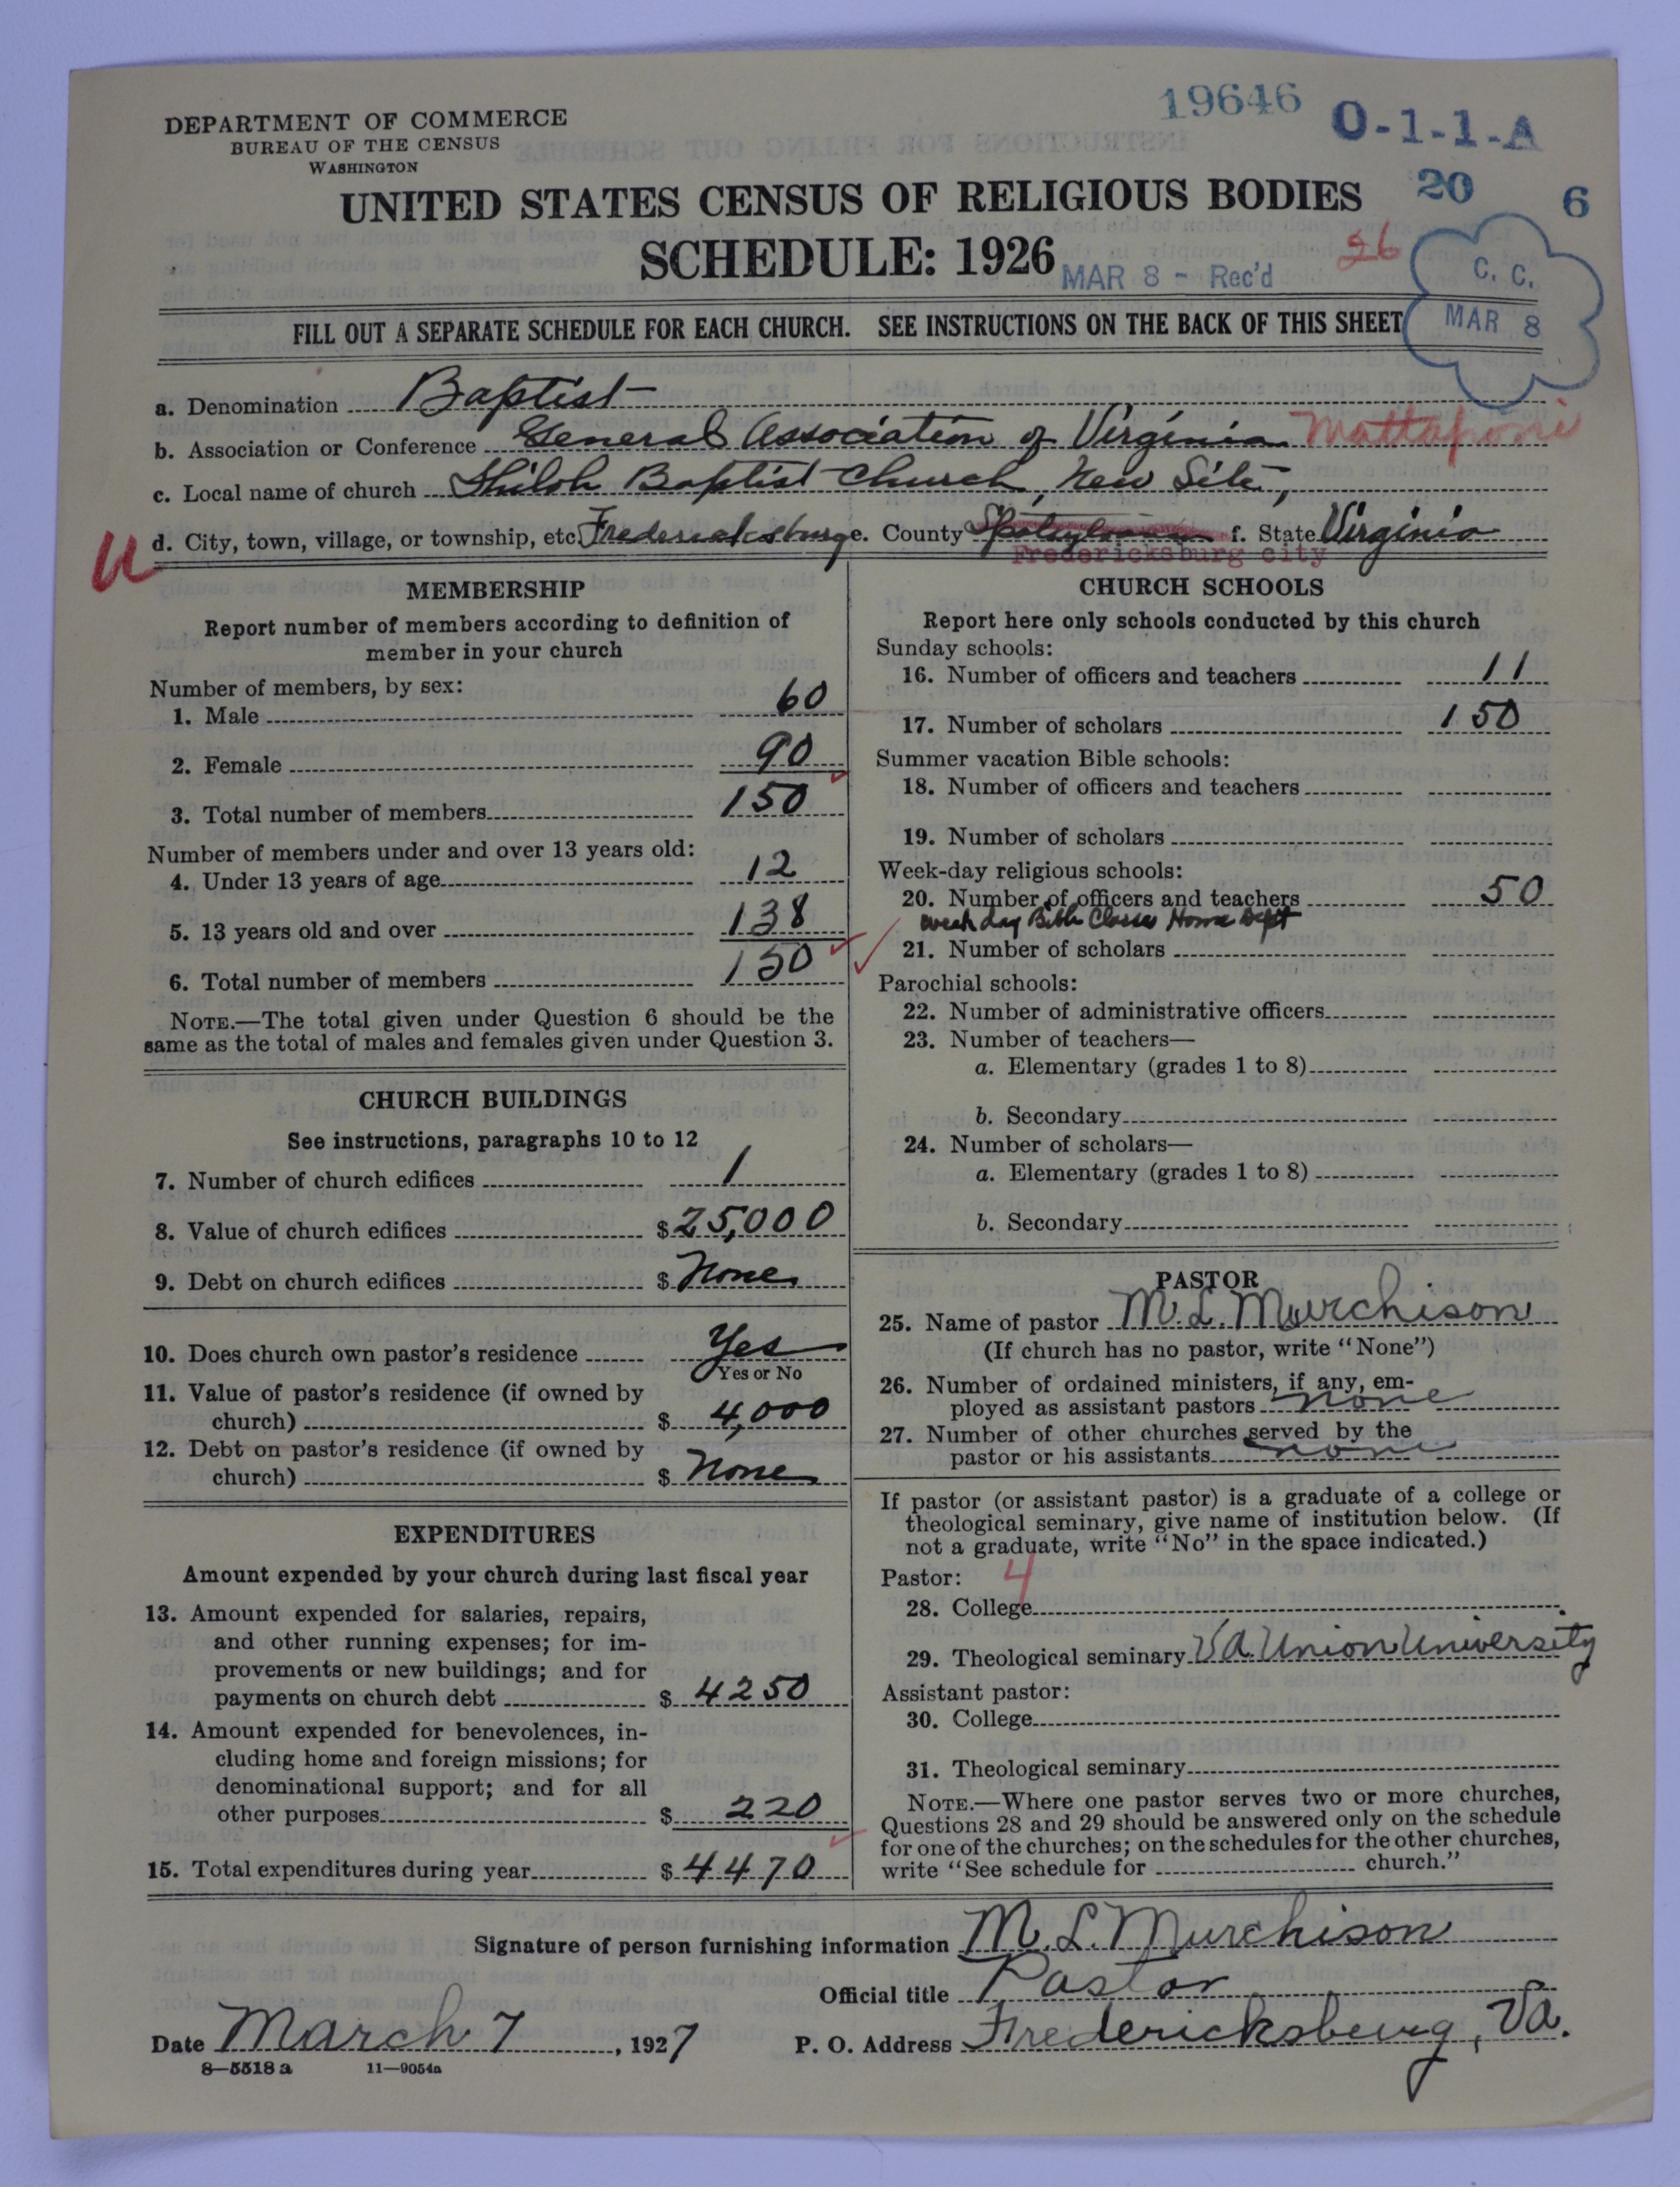 19646
O-1-1-A
DEPARTMENT OF COMMERCE
BUREAU OF THE CENSUS
WASHINGTON
UNITED STATES CENSUS OF RELIGIOUS BODIES
20 6
SCHEDULE: 1926
MAR 8 - Rec'd
26
C. C.
MAR 8
FILL OUT A SEPARATE SCHEDULE FOR EACH CHURCH. SEE INSTRUCTIONS ON THE BACK OF THIS SHEET
a. Denomination Baptist
b. Association or Conference General Association of Virginia Mattaponi
c. Local name of church Shiloh Baptist Church, New Site,
d. City, town, village, or township, etc. Fredericksburg e. County Spotsylvania f. State Virginia
Fredericksburg city
U
MEMBERSHIP
Report number of members according to definition of
member in your church
Number of members, by sex:
1. Male 60
2. Female 90
3. Total number of members 150
Number of members under and over 13 years old:
4. Under 13 years of age 12
5. 13 years old and over 138
6. Total number of members 150
NOTE.—The total given under Question 6 should be the
same as the total of males and females given under Question 3.
CHURCH BUILDINGS
See instructions, paragraphs 10 to 12
7. Number of church edifices 1
8. Value of church edifices $ 25,000
9. Debt on church edifices $ None
10. Does church own pastor's residence Yes
Yes or No
11. Value of pastor's residence (if owned by
church) $ 4,000
12. Debt on pastor's residence (if owned by
church) $ None
EXPENDITURES
Amount expended by your church during last fiscal year
13. Amount expended for salaries, repairs,
and other running expenses; for im-
provements or new buildings; and for
payments on church debt $ 4250
14. Amount expended for benevolences, in-
cluding home and foreign missions; for
denominational support; and for all
other purposes $ 220
15. Total expenditures during year $ 4470
CHURCH SCHOOLS
Report here only schools conducted by this church
Sunday schools:
16. Number of officers and teachers 11
17. Number of scholars 150
Summer vacation Bible schools:
18. Number of officers and teachers
19. Number of scholars
Week-day religious schools:
20. Number of officers and teachers 50
Week day Bible Classes Home Dept
21. Number of scholars
Parochial schools:
22. Number of administrative officers
23. Number of teachers—
a. Elementary (grades 1 to 8)
b. Secondary
24. Number of scholars—
a. Elementary (grades 1 to 8)
b. Secondary
PASTOR
25. Name of pastor M. L. Murchison
(If church has no pastor, write "None")
26. Number of ordained ministers, if any, em-
ployed as assistant pastors none
27. Number of other churches served by the
pastor or his assistants none
If pastor (or assistant pastor) is a graduate of a college or
theological seminary, give name of institution below. (If
not a graduate, write "No" in the space indicated.)
Pastor: 4
28. College
29. Theological seminary Va. Union University
Assistant pastor:
30. College
31. Theological seminary
NOTE.—Where one pastor serves two or more churches,
Questions 28 and 29 should be answered only on the schedule
for one of the churches; on the schedules for the other churches,
write "See schedule for church."
Signature of person furnishing information M. L. Murchison
Official title Pastor
Date March 7, 1927 P. O. Address Fredericksburg, Va.
8—5518 a 11—9054a